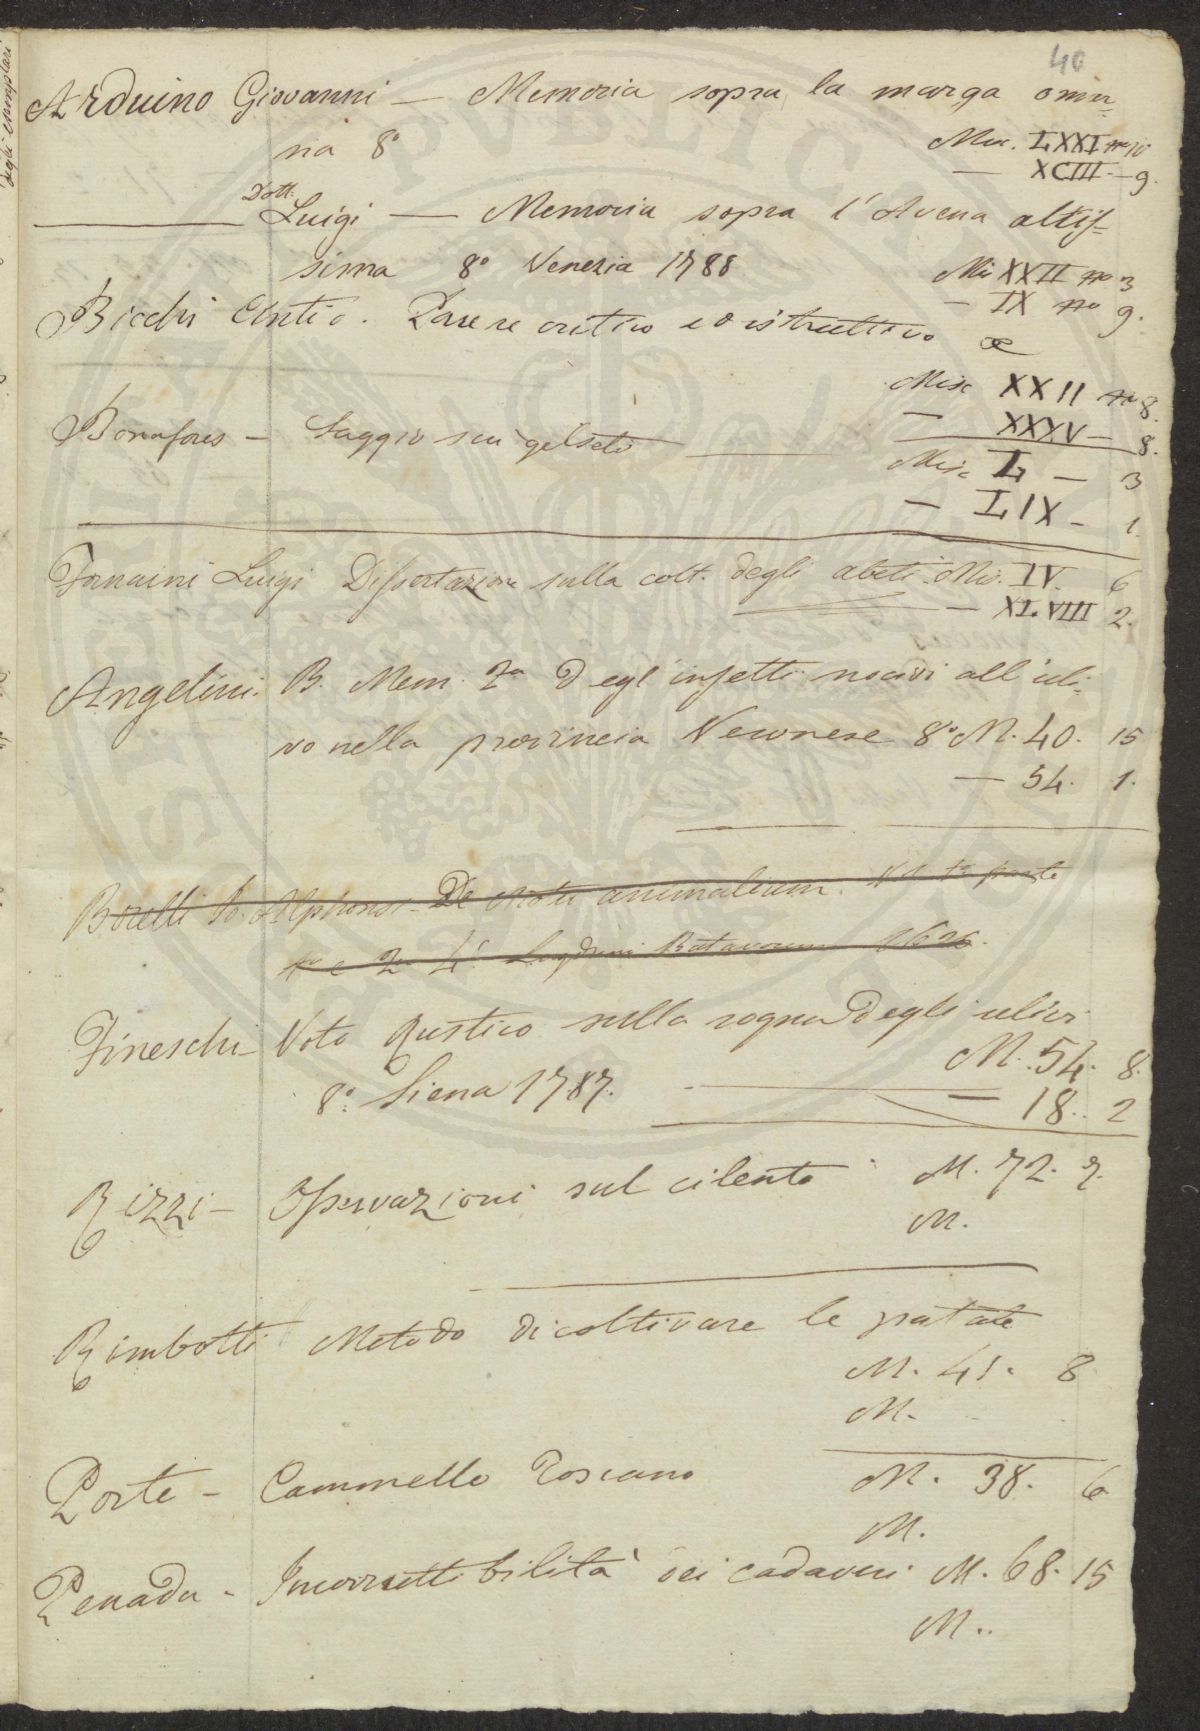 40
degli esemplari
Arduino Giovanni — Memoria sopra la marga omu=
na 8.° Misc. LXXI n.° 10
— XCIII — 9.
——— Dott. Luigi — Memoria sopra l'Avena altis=
sima 8.° Venezia 1788 Mis XXII n.° 3
— IX n.° 9.
Bicchi Antio. Parere critico ed istruttivo &
Misc XXII n.° 8.
— XXXV — 8.
Bonafous — Saggio sui gelseti
Misc L — 3
— LIX — 1.
Fornaini Luigi Dissertazione sulla colt. degli abeti Mis. IV. 6
— XLVIII 2.
Angelini B. Mem. 2.a degl'insetti nocivi all'uli=
vo nella provincia Veronese 8.° M. 40. 15
— 54. 1.
Borelli Io. Alphonsi De Motu animalium. Vol. parte
1.a e 2.a 4.° Lugduni Batavorum
Fineschi — Voto Rustico sulla rogna degli ulivi
8.° Siena 1787. M. 54. 8.
— 18. 2
Rizzi — Osservazioni sul cilento M. 72. 7.
M.
Rimbotti Metodo di coltivare le patate
M. 41. 8
M.
Porte — Cammello Toscano M. 38. 6
M.
Penada — Incorruttibilità dei cadaveri M. 68. 15
M..